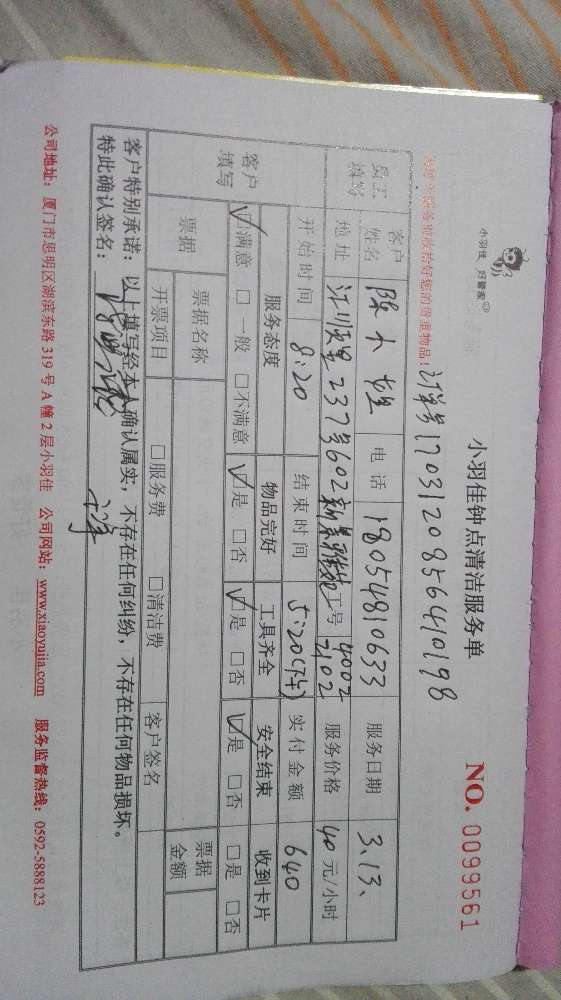 小羽佳 好管家
小羽佳钟点清洁服务单
NO. 0099561
订单号170312085640198
为您服务前请收拾好您的贵重物品!
员工填写
客户姓名 陈小姐 电话 18054810633 服务日期 3.13、
地址 237号602 工号 4002 2102 服务价格 40元/小时
开始时间 8:20 结束时间 5:20 实付金额 640
客户填写
服务态度 物品完好 工具齐全 安全结束 收到卡片
☑满意 □一般 □不满意 ☑是 □否 ☑是 □否 ☑是 □否 □是 □否
票据 票据名称 票据金额
开票项目 □服务费 □清洁费 客户签名
客户特别承诺:以上填写经本人确认属实,不存在任何纠纷,不存在任何物品损坏。
特此确认签名:
公司地址:厦门市思明区湖滨东路319号A幢2层小羽佳 公司网站:www.xiaoyujia.com 服务监督热线:0592-5888123